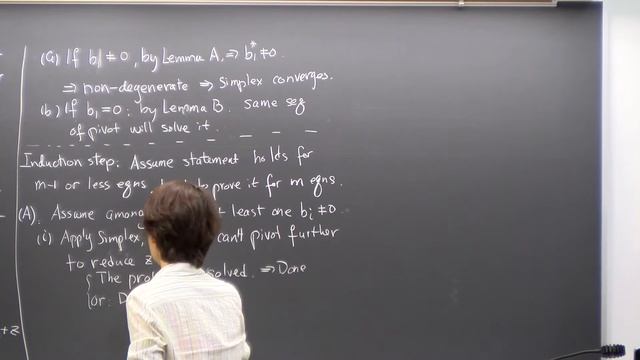 (a) If b₁ ≠ 0, by Lemma A, ⇒ b₁* ≠ 0.
⇒ non-degenerate ⇒ Simplex converges.
(b) If b₁ = 0: by Lemma B. Same seq
of pivot will solve it.
Induction step: Assume statement holds for
m-1 or less eqns, to prove it for m eqns.
(A). Assume among least one bᵢ ≠ 0.
(i) Apply Simplex, can't pivot further
to reduce z
{ The solved. ⇒ Done
or:
+z